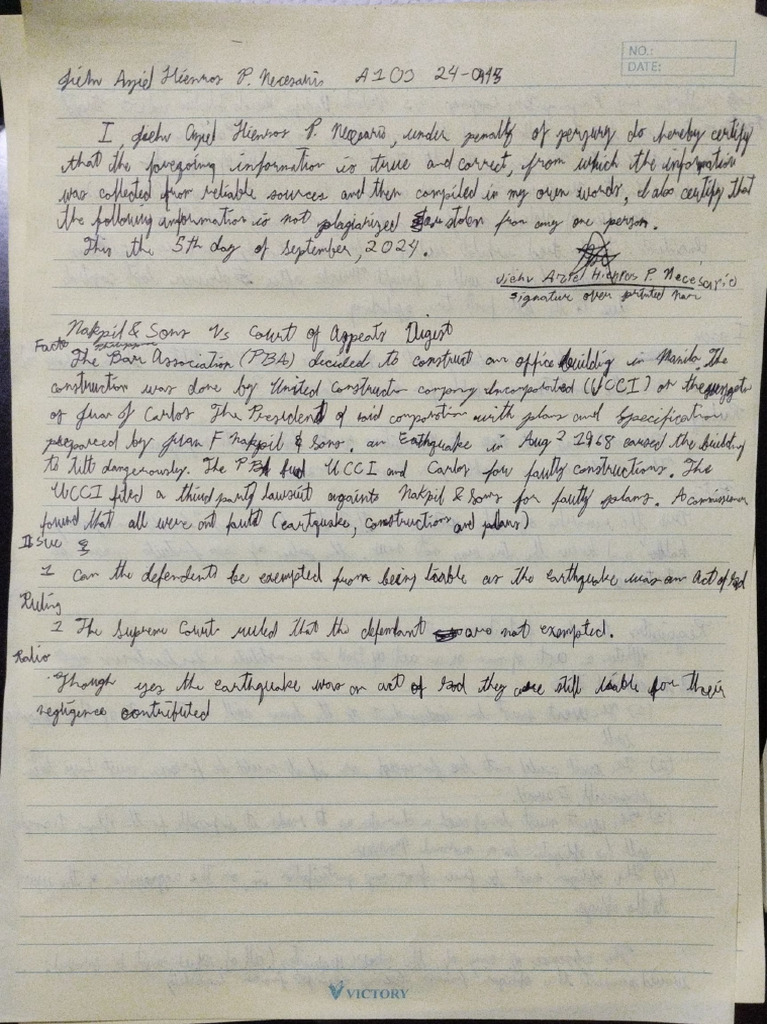 NO.:
DATE:
Jiehv Arziel Hienros P. Necesario A103 24-0943
I, Jiehv Arziel Hienros P. Necesario, under penalty of perjury do hereby certify
that the foregoing information is true and correct, from which the information
was collected from reliable sources and then compiled in my own words, I also certify that
the following information is not plagiarized stolen from any one person.
This the 5th day of September, 2024.
Jiehv Arziel Hienros P. Necesario
signature over printed nam
Nakpil & Sons Vs Court of Appeals Digest
Facts
The Bar Association (PBA) decided to construct an office building in Manila. The
construction was done by United Construction company Incorporated (UCCI) on the
of Juan J Carlos The President of said corporation with plans and Specification
prepared by Juan F Nakpil & Sons. an Eathquake in Aug 2 1968 caused the building
to tilt dangerously. The PBA UCCI and Carlos for faulty constructions. The
UCCI filed a third party lawsuit againts Nakpil & Sons for faulty plans. A commissioner
found that all were at fault (eartquake, construction and plans)
Issue
1 Can the defendents be exempted from being liable as the earthquake was an Act of God
Ruling
1 The Supreme Court ruled that the defendant are not exempted.
Ratio
Though yes the earthquake was an act of God they were still liable for their
negligence contributed
VICTORY